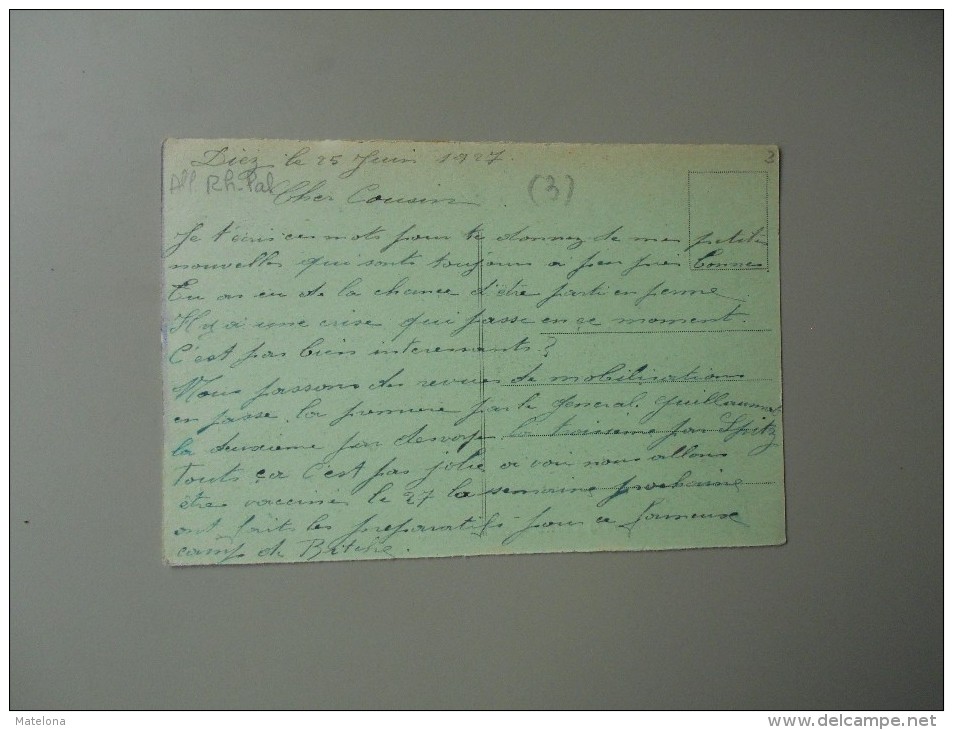 Diez le 25 Juin 1927.
3
All. Rh-Pal
Cher Cousin
(3)
Je t'écris ces mots pour te donnez de mes petites
nouvelles qui sont toujours a peu près bonnes
Tu as eu de la chance d'être parti en perme
Il y a une crise qui passe en ce moment.
C'est pas bien interessants?
Nous passons des revues de mobilisations
en passe la premiere par le general Guillaumat
la deuxieme par la troisieme par Spitz
touts ça c'est pas jolie a voir nous allons
être vacciné le 27 la semaine prochaine
ont faits les preparatifs pour ce fameuse
camp de Bitche.
Matelona
www.delcampe.net